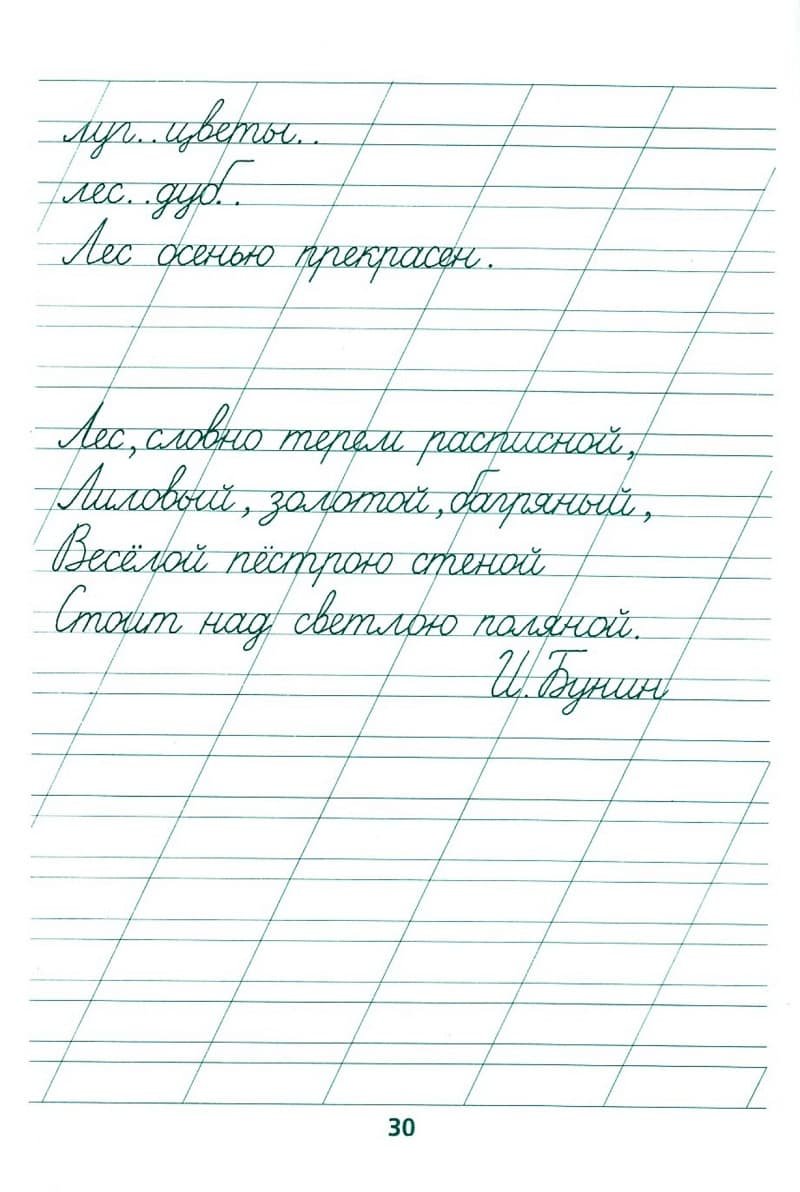 луг..цветы..
лес..дуб..
Лес осенью прекрасен.
Лес, словно терем расписной,
Лиловый, золотой, багряный,
Весёлой пёстрою стеной
Стоит над светлою поляной.
И. Бунин
30